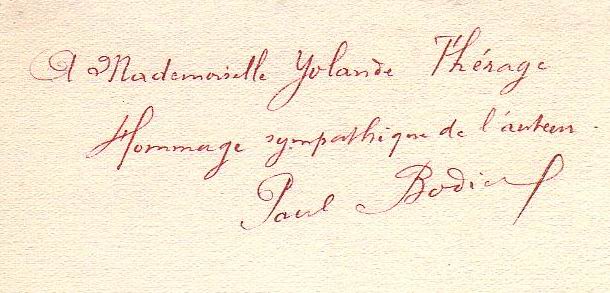 A Mademoiselle Yolande Thérage
Hommage sympathique de l'auteur.
Paul Bodier